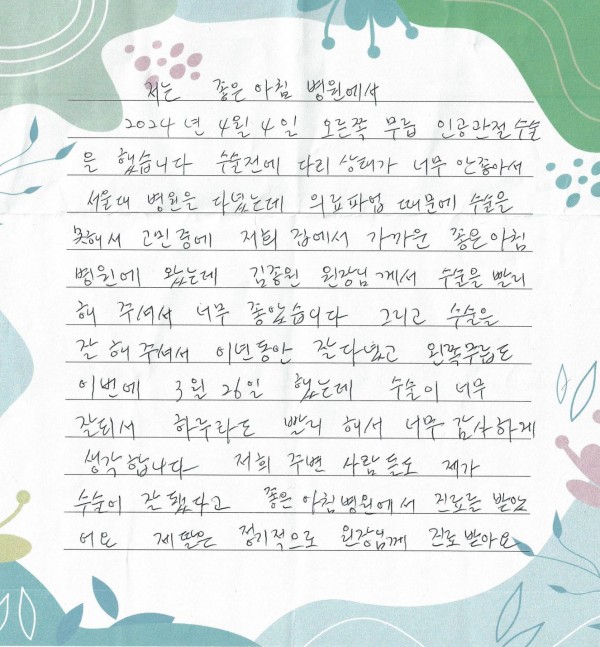 저는 좋은아침 병원에서
2024년 4월 4일 오른쪽 무릎 인공관절수술
을 했습니다 수술전에 다리상태가 너무 안좋아서
서울대 병원을 다녔는데 의료파업 때문에 수술을
못해서 고민중에 저희 집에서 가까운 좋은아침
병원에 왔는데 김종원 원장님께서 수술을 빨리
해 주셔서 너무 좋았습니다 그리고 수술을
잘 해 주셔서 이년동안 잘다녔고 왼쪽무릎도
이번에 3월 26일 했는데 수술이 너무
잘되서 하루라도 빨리 해서 너무 감사하게
생각합니다 저희 주변 사람들도 제가
수술이 잘 됐다고 좋은아침병원에서 진료를 받았
어요 제 딸은 정기적으로 원장님께 진료 받아요